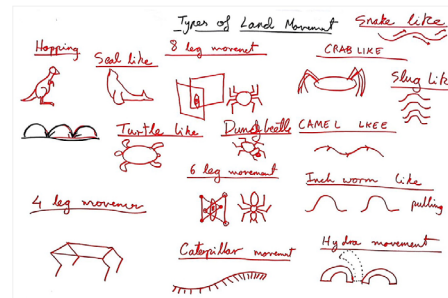 Types of Land Movement
Snake like
Hopping
Seal like
8 leg movemet
CRAB LIKE
Slug Lik
Turtle like
Dung beetle
CAMEL LKEE
6 leg movement
Inch worm like
pulling
4 leg movemer
Caterpillar movemnt
Hydra movement